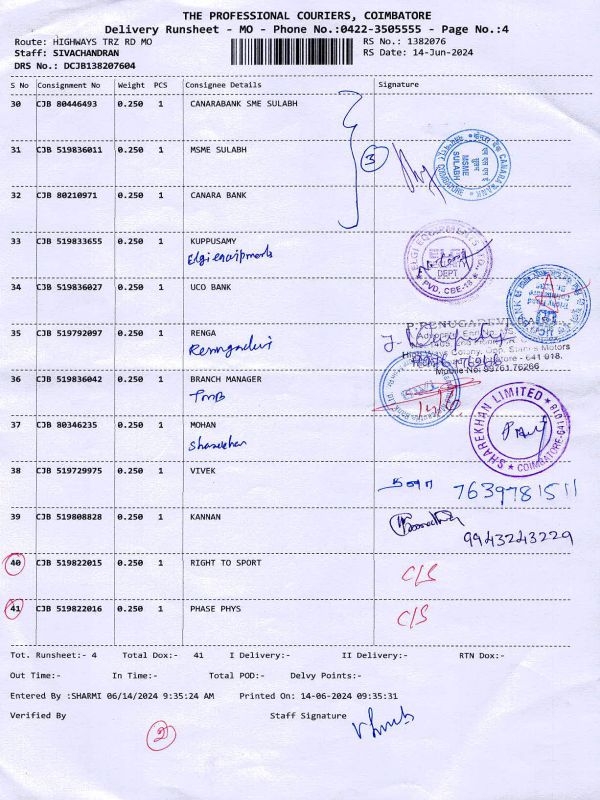 THE PROFESSIONAL COURIERS, COIMBATORE
Delivery Runsheet - MO - Phone No.:0422-3505555 - Page No.:4
Route: HIGHWAYS TRZ RD MO RS No.: 1382076
Staff: SIVACHANDRAN RS Date: 14-Jun-2024
DRS No.: DCJB138207604
S No Consignment No Weight PCS Consignee Details Signature
30 CJB 80446493 0.250 1 CANARABANK SME SULABH
31 CJB 519836011 0.250 1 MSME SULABH
3
CANARA BANK MSME SULABH
32 CJB 80210971 0.250 1 CANARA BANK
33 CJB 519833655 0.250 1 KUPPUSAMY
Elgi equipments
ELGI EQUIPMENTS DEPT PVD, CBE-18
34 CJB 519836027 0.250 1 UCO BANK
35 CJB 519792097 0.250 1 RENGA
Renugadevi
P.RENUGADEVI
Mobile No: 99761 76266
36 CJB 519836042 0.250 1 BRANCH MANAGER
TMB
37 CJB 80346235 0.250 1 MOHAN
Sharekhan
SHAREKHAN LIMITED COIMBATORE-641018
38 CJB 519729975 0.250 1 VIVEK
7639781511
39 CJB 519808828 0.250 1 KANNAN
9943243229
40 CJB 519822015 0.250 1 RIGHT TO SPORT C/S
41 CJB 519822016 0.250 1 PHASE PHYS C/S
Tot. Runsheet:- 4 Total Dox:- 41 I Delivery:- II Delivery:- RTN Dox:-
Out Time:- In Time:- Total POD:- Delvy Points:-
Entered By :SHARMI 06/14/2024 9:35:24 AM Printed On: 14-06-2024 09:35:31
Verified By Staff Signature
2